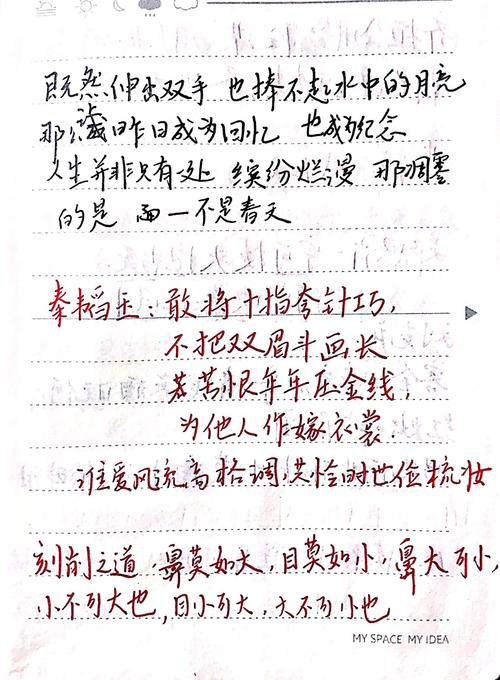 既然伸出双手 也捧不起水中的月亮
那么让昨日成为回忆 也成为纪念
人生并非只有一处 缤纷烂漫 那凋零
的是 不是春天
秦韬玉：敢将十指夸针巧，
不把双眉斗画长
苦恨年年压金线，
为他人作嫁衣裳．
谁爱风流高格调，共怜时世俭梳妆
刻削之道，鼻莫如大，目莫如小，鼻大可小，
小不可大也，目小可大，大不可小也
MY SPACE MY IDEA